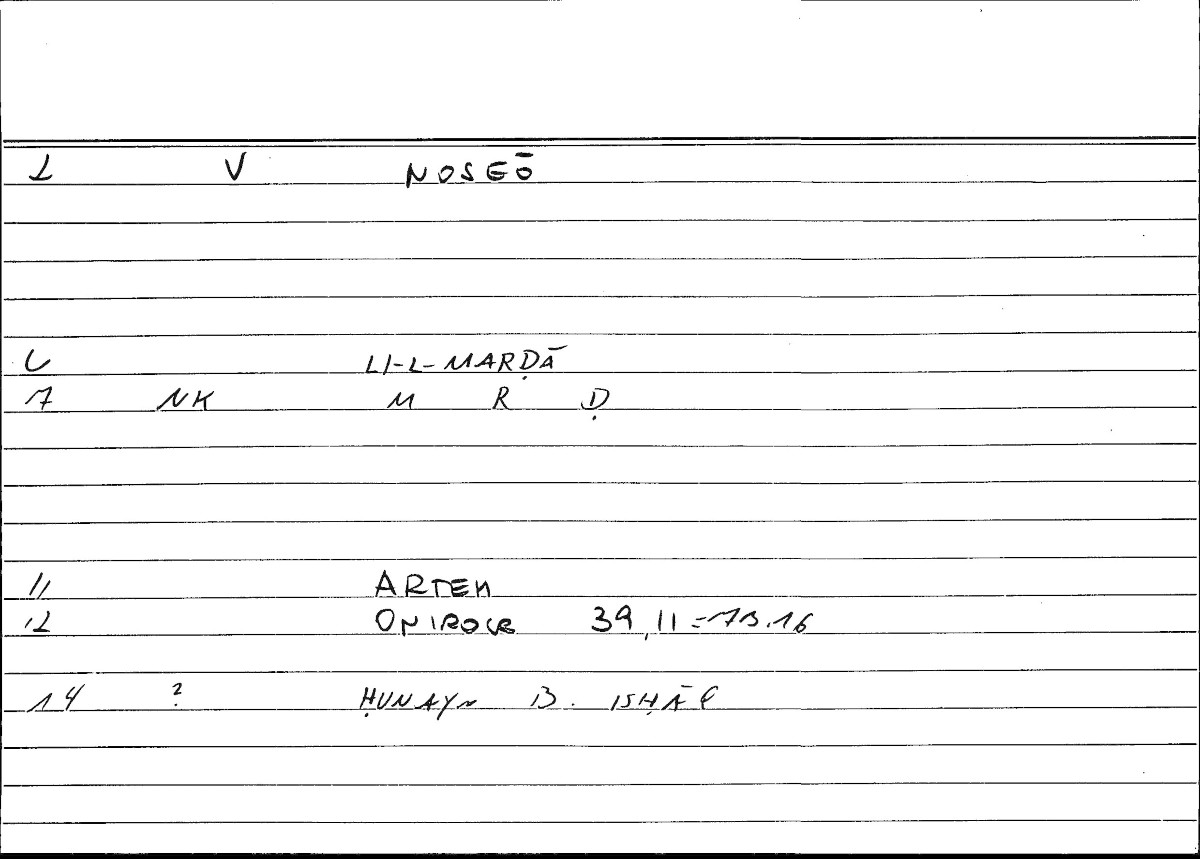 2 V NOSEŌ
6 LI-L-MARḌĀ
7 NK M R Ḍ
11 ARTEM
12 ONIROCR 39,11=73.16
14 ? ḤUNAYN B. ISḤĀQ